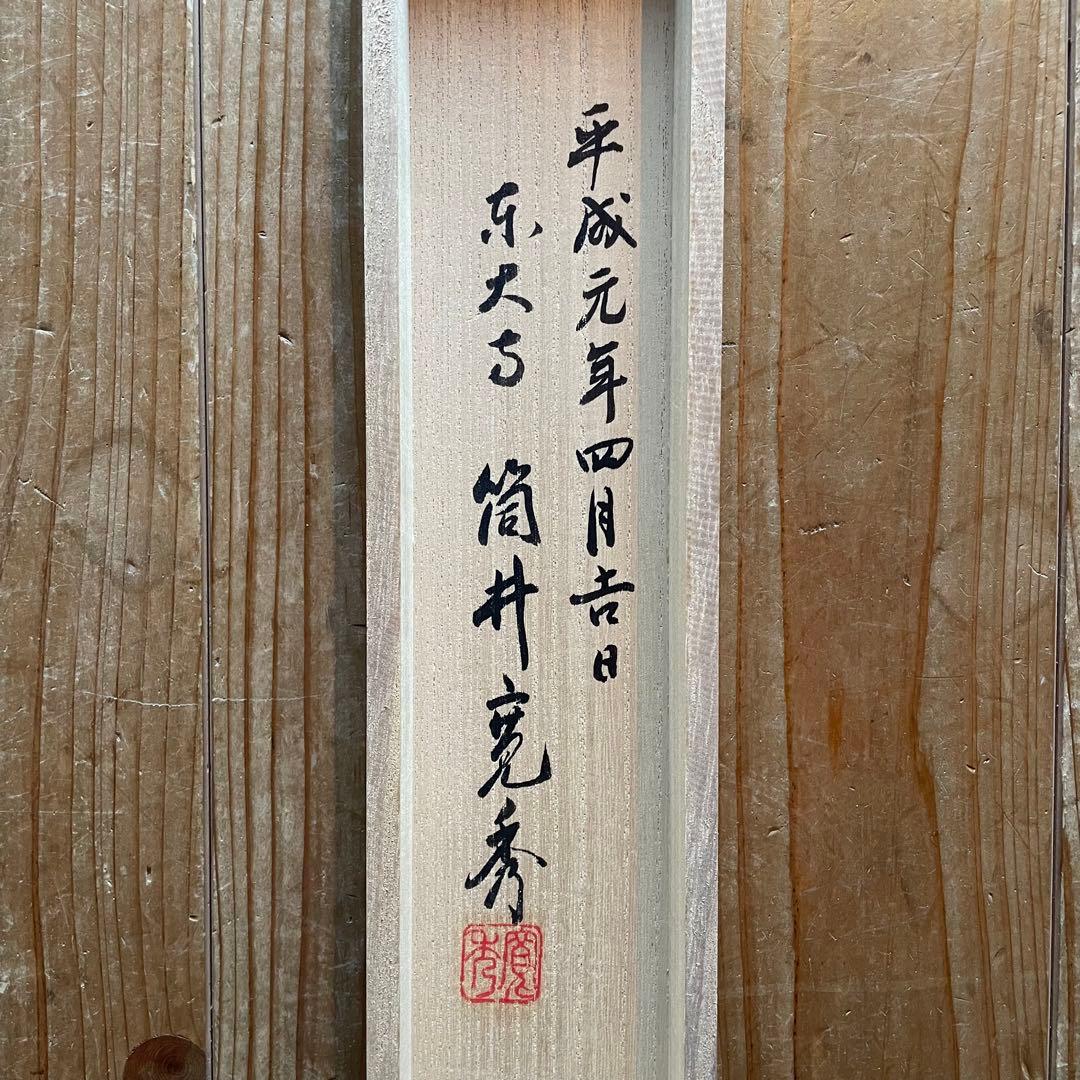 平成元年四月吉日
东大寺 筒井寛秀
寛秀